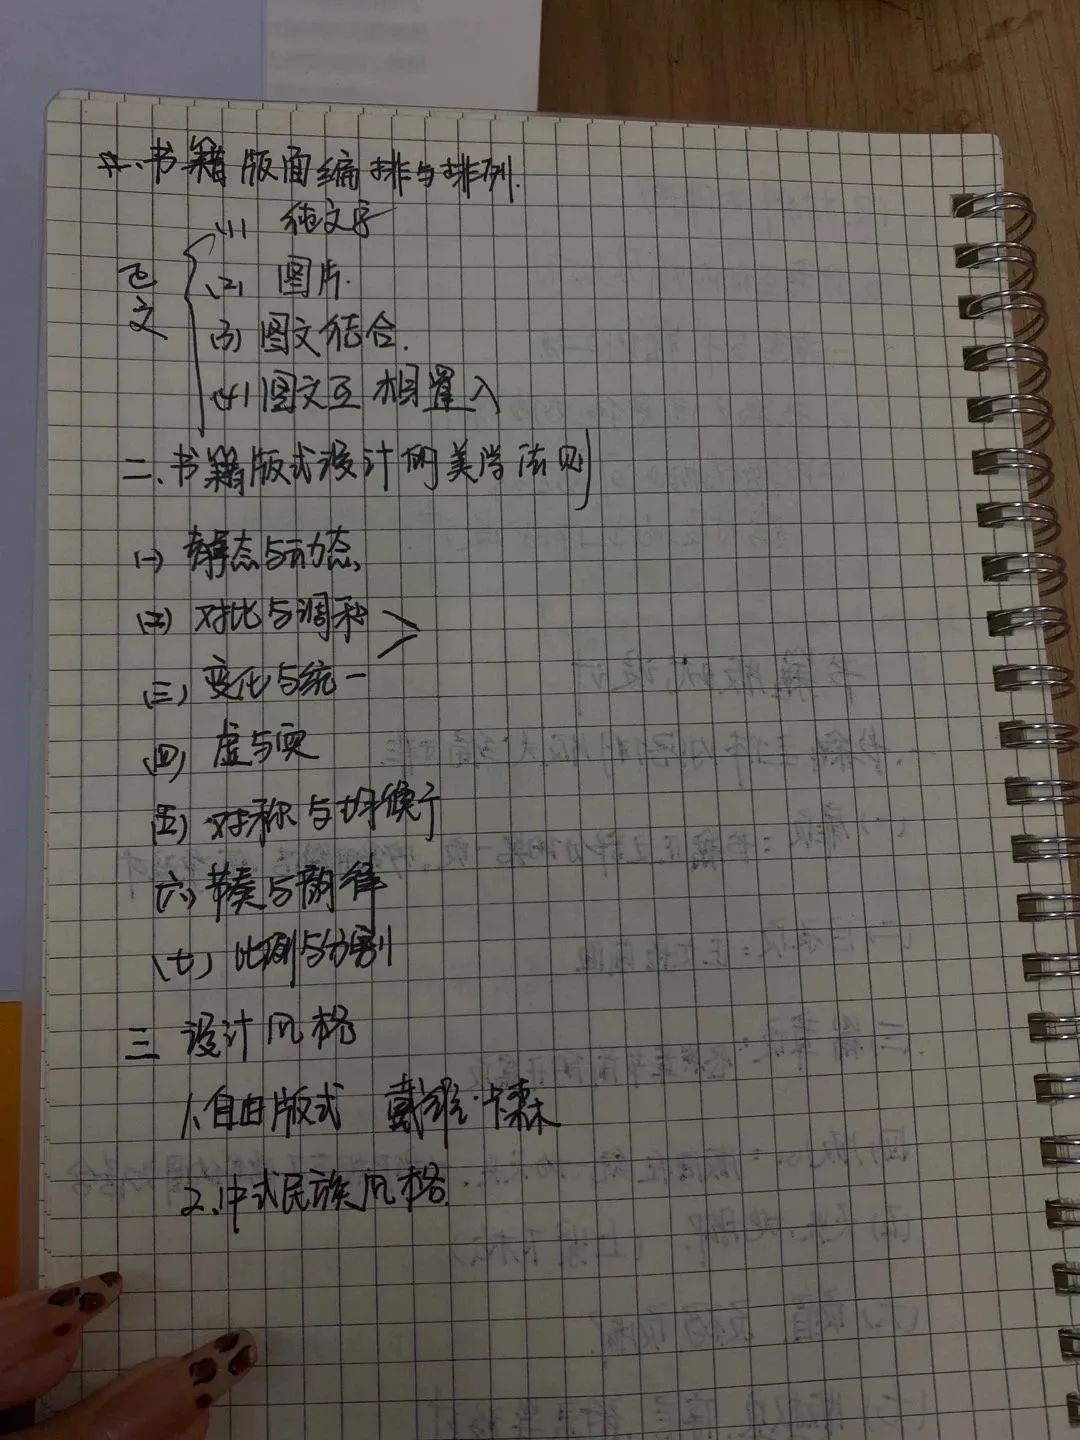 一、书籍版面编排与排列.
(1) 纯文字
(2) 图片.
(3) 图文结合.
(4) 图文互相置入
二、书籍版式设计的美学法则
(一) 静态与动态
(二) 对比与调和
(三) 变化与统一
(四) 虚与实
(五) 对称与均衡
(六) 节奏与韵律
(七) 比例与分割
三 设计风格
1、自由版式 戴维·卡森
2、中式民族风格.